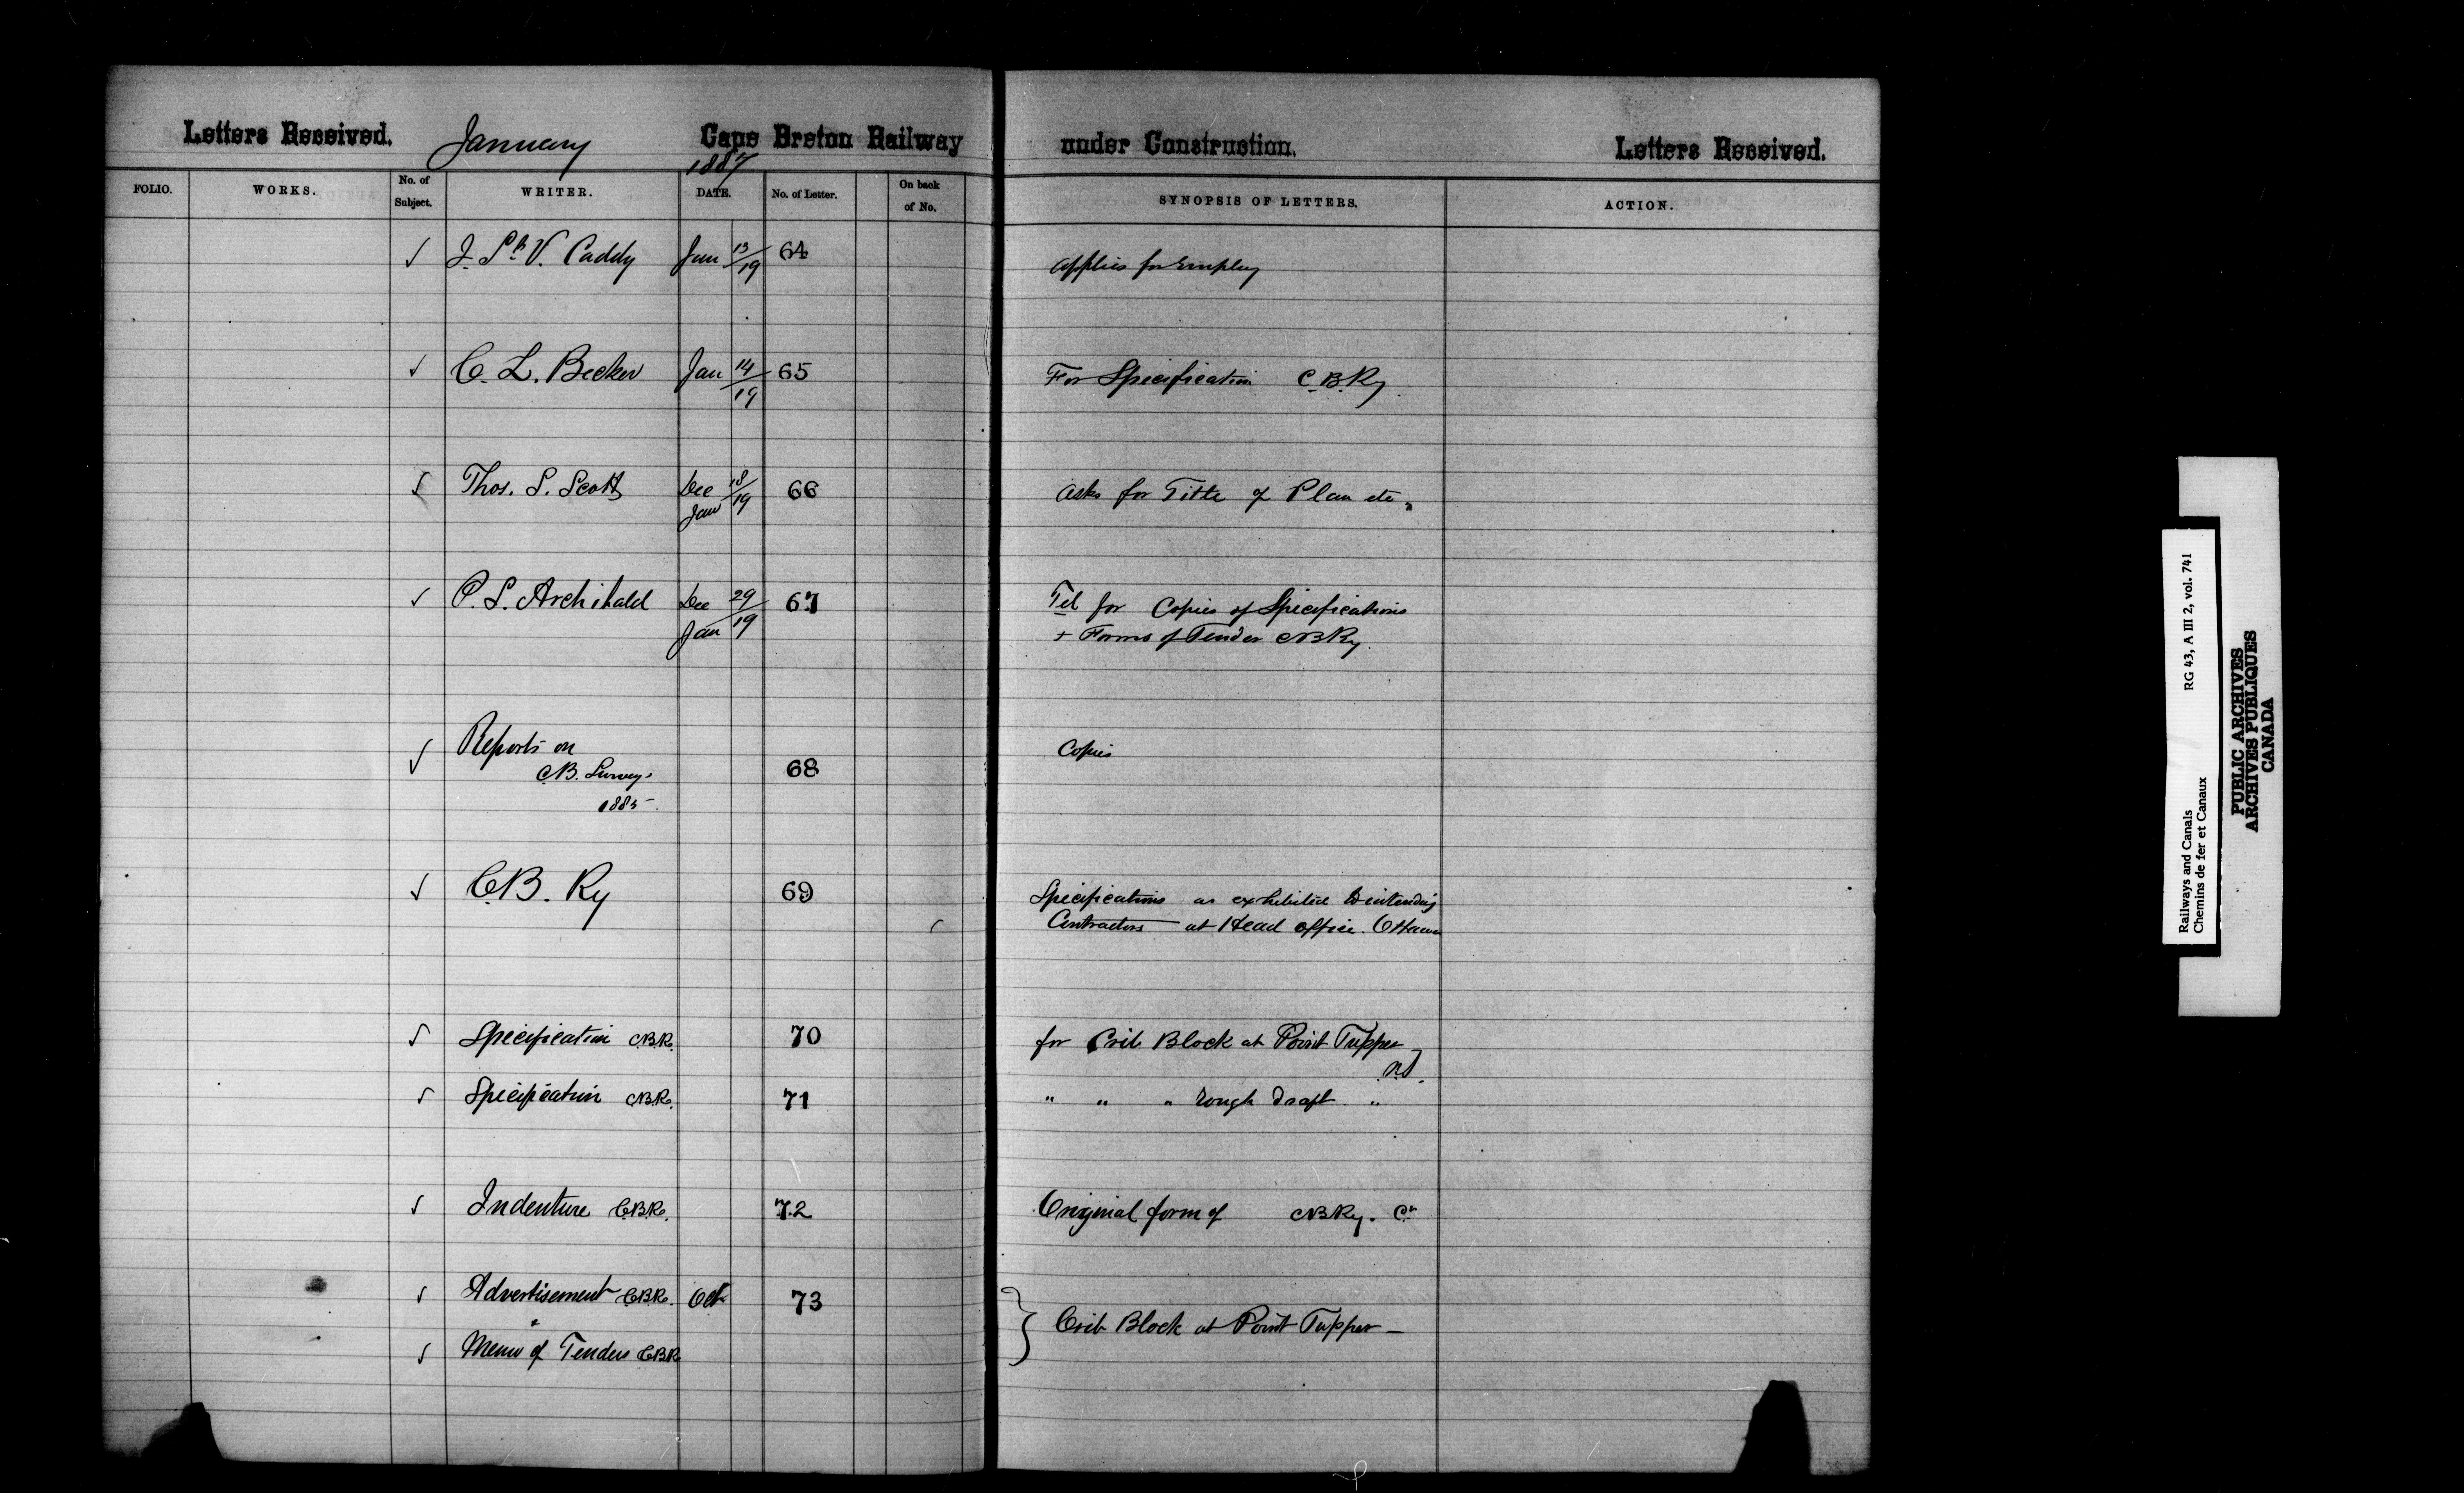 Letters Received. January 1887 Cape Breton Railway under Construction. Letters Received.
FOLIO. WORKS. No. of Subject. WRITER. DATE. No. of Letter. On back of No. SYNOPSIS OF LETTERS. ACTION.
√ J. St. V. Caddy Jan 13/19 64 Applies for Employ
√ C. L. Becker Jan 14/19 65 For Specification C.B.Ry.
√ Thos. S. Scott Dec 18/ Jan 19 66 Asks for Title of Plan etc.
√ P. S. Archibald Dec 29/ Jan 19 67 Tel for Copies of Specifications
+ Forms of Tender CBRy.
√ Reports on 68 Copies
C.B. Surveys
1885-.
√ C.B. Ry 69 Specifications as exhibited to intending
Contractors at Head office. Ottawa
√ Specification C.B.R. 70 for Crib Block at Point Tupper
N.S.
√ Specification C.B.R. 71 " " " rough draft "
√ Indenture C.B.R. 72 Original form of CBRy. Cn
√ Advertisement C.B.R. Oct 73
} Crib Block at Point Tupper —
√ Memo of Tenders C.B.R
Railways and Canals RG 43, A III 2, vol. 741
Chemins de fer et Canaux
PUBLIC ARCHIVES
ARCHIVES PUBLIQUES
CANADA